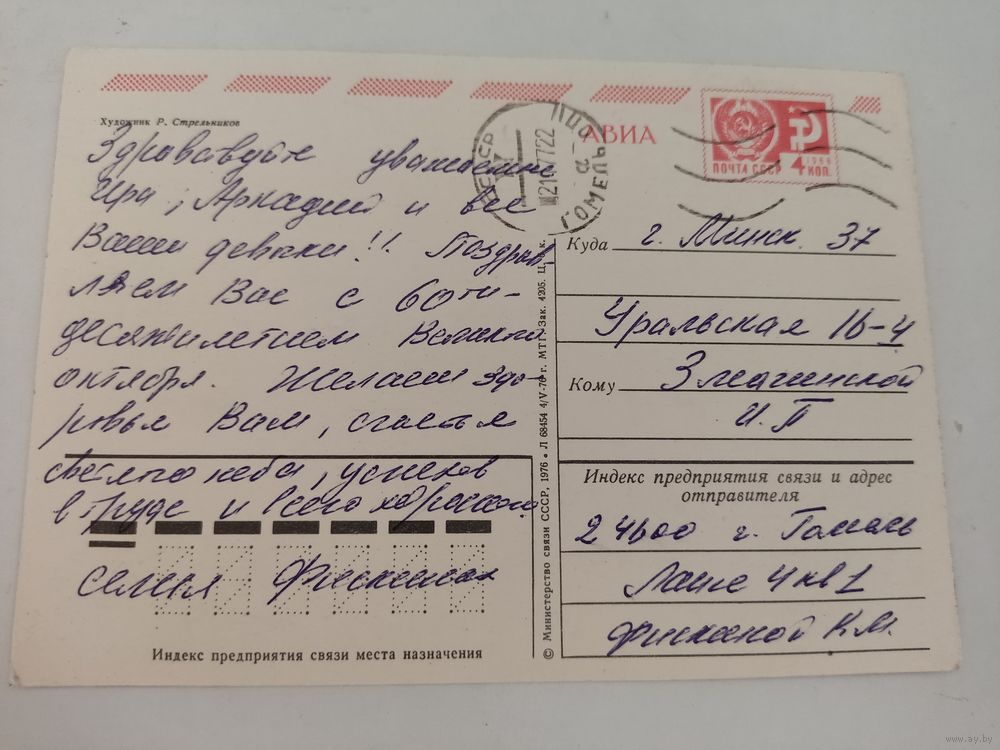 Художник Р. Стрельников
Здравствуйте уважаемые
Ира, Аркадий и все
Ваши девочки!! Поздрав-
ляем Вас с 60ти-
десятилетием Великого
октября. Желаем здо-
ровья Вам, счастья
светлого неба, успехов
в труде и всего хорошего
семья
Индекс предприятия связи места назначения
© Министерство связи СССР, 1976 • Л 68454 4/V-76 г. МТГ. Зак. 4205. Ц. 5 к.
АВИА
ПОЧТА СССР 4 КОП.
1966
ГОМЕЛЬ
Куда г. Минск 37
Уральская 16-4
Кому
И.П
Индекс предприятия связи и адрес
отправителя
24600 г. Гомель
4 кв 1
К.М.
www.ay.by